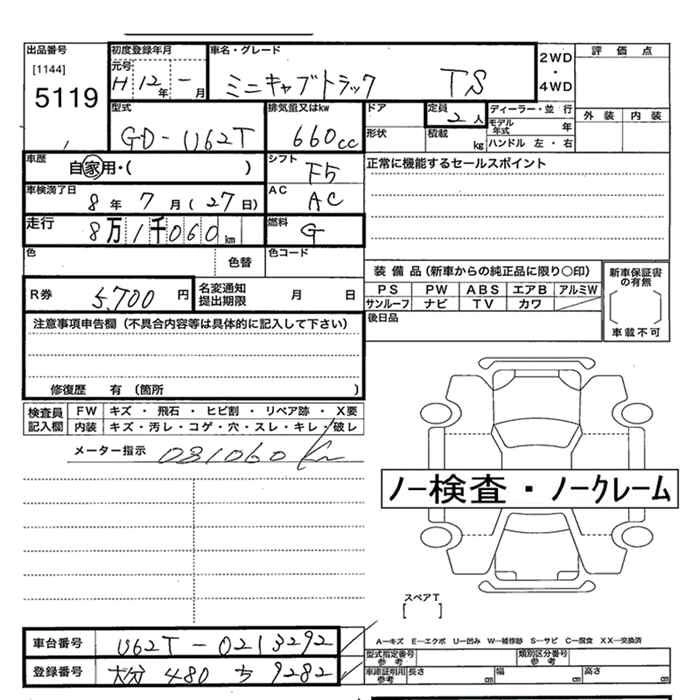 出品番号 初度登録年月 車名・グレード 2WD・4WD 評価点
[1144] 元号 H 12年 一月 ミニキャブトラック TS
5119
型式 排気量又はkw ドア 定員 ディーラー・並行 外装 内装
GD-U62T 660cc 形状 積載 kg 2人 モデル年式 年
ハンドル 左・右
車歴 シフト 正常に機能するセールスポイント
自家用・( ) F5
車検満了日 AC
8年 7月(27日) AC
走行 燃料
8万1千060km G
色 色替 色コード
装備品(新車からの純正品に限り〇印) 新車保証書の有無
R券 5,700円 名変通知提出期限 月 日 PS PW ABS エアB アルミW
サンルーフ ナビ TV カワ 車載不可
注意事項申告欄(不具合内容等は具体的に記入して下さい) 後日品
修復歴 有(箇所 )
検査員記入欄 FW キズ・飛石・ヒビ割・リペア跡・X要
内装 キズ・汚レ・コゲ・穴・スレ・キレ・破レ
メーター指示 081060Km
ノー検査・ノークレーム
スペアT
[ ]
車台番号 U62T-0213292 A―キズ E―エクボ U―凹み W―補修跡 S―サビ C―腐食 XX―交換済
型式指定番号 参考 類別区分番号 参考
登録番号 大分 480 ち 9282 車庫証明用 参考 長さ cm 幅 cm 高さ cm